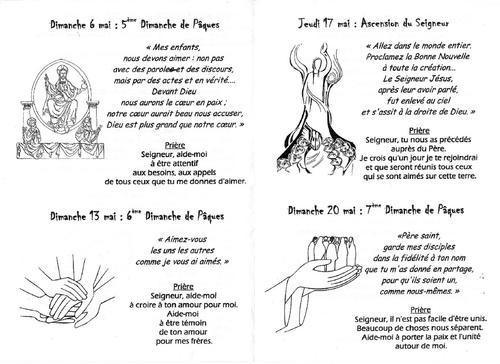 Dimanche 6 mai : 5ème Dimanche de Pâques
« Mes enfants,
nous devons aimer : non pas
avec des paroles et des discours,
mais par des actes et en vérité....
Devant Dieu
nous aurons le cœur en paix ;
notre cœur aurait beau nous accuser,
Dieu est plus grand que notre cœur. »
Prière
Seigneur, aide-moi
à être attentif
aux besoins, aux appels
de tous ceux que tu me donnes d'aimer.
Dimanche 13 mai : 6ème Dimanche de Pâques
« Aimez-vous
les uns les autres
comme je vous ai aimés. »
Prière
Seigneur, aide-moi
à croire à ton amour pour moi.
Aide-moi
à être témoin
de ton amour
pour mes frères.
Jeudi 17 mai : Ascension du Seigneur
« Allez dans le monde entier.
Proclamez la Bonne Nouvelle
à toute la création...
Le Seigneur Jésus,
après leur avoir parlé,
fut enlevé au ciel
et s'assit à la droite de Dieu. »
Prière
Seigneur, tu nous as précédés
auprès du Père.
Je crois qu'un jour je te rejoindrai
et que seront réunis tous ceux
qui se sont aimés sur cette terre.
Dimanche 20 mai : 7ème Dimanche de Pâques
«Père saint,
garde mes disciples
dans la fidélité à ton nom
que tu m'as donné en partage,
pour qu'ils soient un,
comme nous-mêmes. »
Prière
Seigneur, il n'est pas facile d'être unis.
Beaucoup de choses nous séparent.
Aide-moi à porter la paix et l'unité
autour de moi.